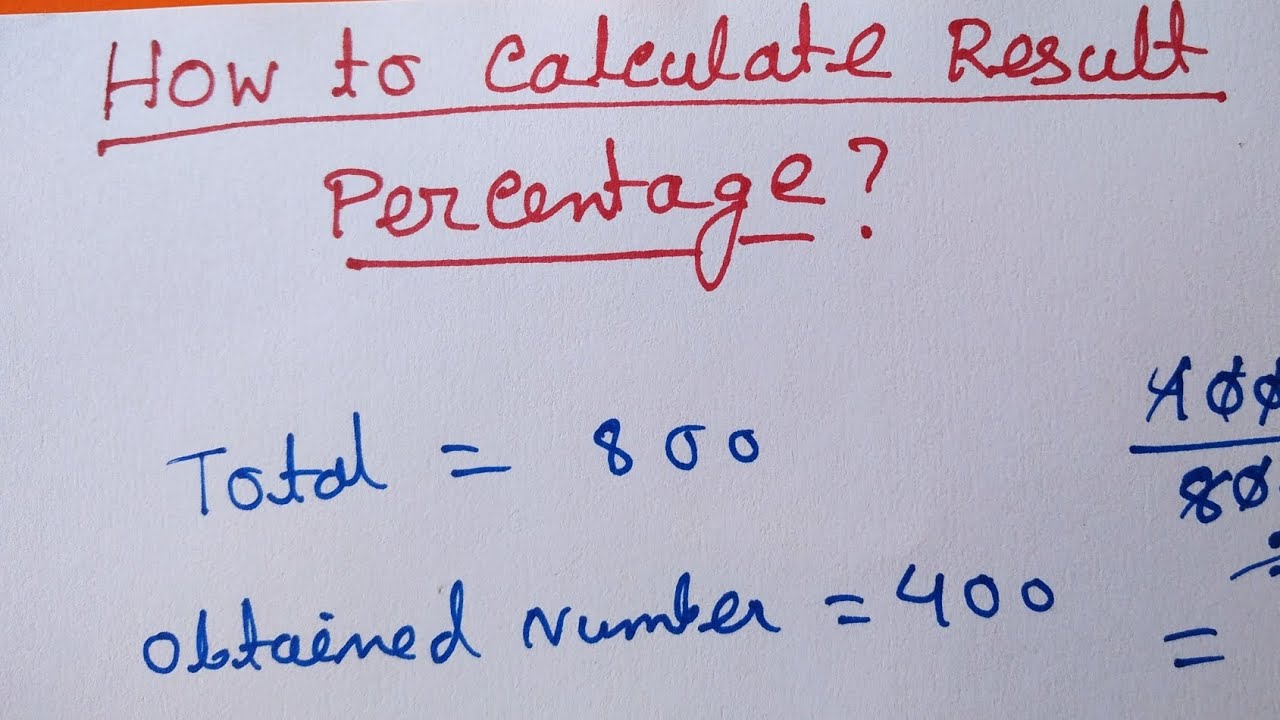 How to Calculate Result
Percentage?
Total = 800
400
80
Obtained Number = 400
=